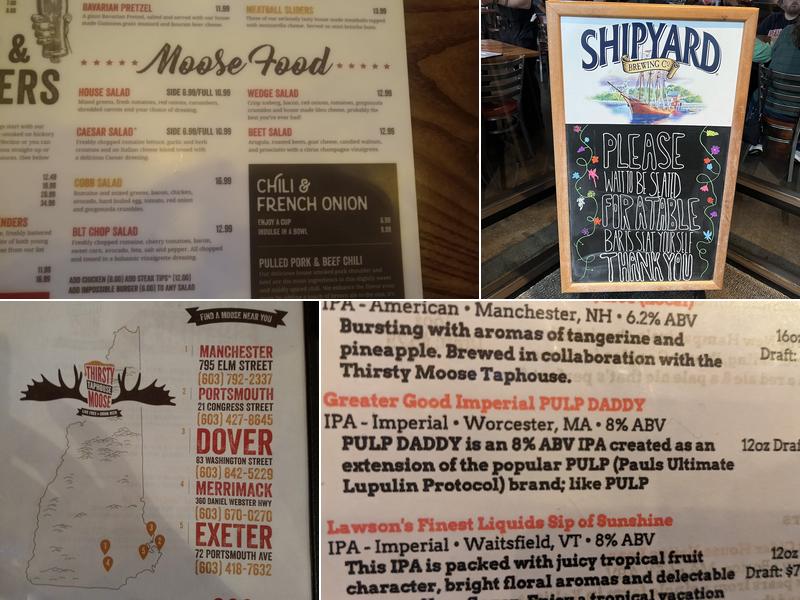 BAVARIAN PRETZEL 11.99
A giant Bavarian Pretzel, salted and served with our house
made Guinness grain mustard and bourbon beer cheese.
MEATBALL SLIDERS 13.99
Three of our seriously tasty house made meatballs topped
with mozzarella cheese. Served on mini brioche buns.
&
ERS
Moose Food
HOUSE SALAD SIDE 6.99/FULL 10.99
Mixed greens, fresh tomatoes, red onions, cucumbers,
shredded carrots and your choice of dressing.
CAESAR SALAD* SIDE 6.99/FULL 10.99
Freshly chopped romaine lettuce, garlic and herb
croutons and an Italian cheese blend tossed with
a delicious Caesar dressing.
COBB SALAD 16.99
Romaine and mixed greens, bacon, chicken,
avocado, hard boiled egg, tomato, red onion
and gorgonzola crumbles.
BLT CHOP SALAD 12.99
Freshly chopped romaine, cherry tomatoes, bacon,
sweet corn, avocado, feta, salt and pepper. All chopped
and tossed in a balsamic vinaigrette dressing.
ADD CHICKEN (6.00) ADD STEAK TIPS* (12.00)
ADD IMPOSSIBLE BURGER (6.00) TO ANY SALAD
WEDGE SALAD 12.99
Crisp iceberg, bacon, red onions, tomatoes, gorgonzola
crumbles and house made bleu cheese, probably the
best you've ever had!
BEET SALAD 12.99
Arugula, roasted beets, goat cheese, candied walnuts,
and prosciutto with a citrus champagne vinaigrette.
CHILI &
FRENCH ONION
ENJOY A CUP 6.99
INDULGE IN A BOWL 9.99
PULLED PORK & BEEF CHILI
Our delicious house smoked pork shoulder and
SHIPYARD
BREWING CO
PLEASE
WAIT TO BE SEATED
FOR A TABLE
BAR IS SEAT YOUR SELF
THANK YOU
FIND A MOOSE NEAR YOU
THIRSTY
TAPHOUSE
MOOSE
LIVE FREE & DRINK BEER
1 MANCHESTER
795 ELM STREET
(603) 792-2337
2 PORTSMOUTH
21 CONGRESS STREET
(603) 427-8645
3 DOVER
83 WASHINGTON STREET
(603) 842-5229
4 MERRIMACK
360 DANIEL WEBSTER HWY
(603) 670-0270
5 EXETER
72 PORTSMOUTH AVE
(603) 418-7632
IPA - American • Manchester, NH • 6.2% ABV
Bursting with aromas of tangerine and
pineapple. Brewed in collaboration with the
Thirsty Moose Taphouse.
16oz
Draft:
Greater Good Imperial PULP DADDY
IPA - Imperial • Worcester, MA • 8% ABV
PULP DADDY is an 8% ABV IPA created as an
extension of the popular PULP (Pauls Ultimate
Lupulin Protocol) brand; like PULP
12oz Draf
Lawson's Finest Liquids Sip of Sunshine
IPA - Imperial • Waitsfield, VT • 8% ABV
This IPA is packed with juicy tropical fruit
character, bright floral aromas and delectable
12oz
Draft: $7